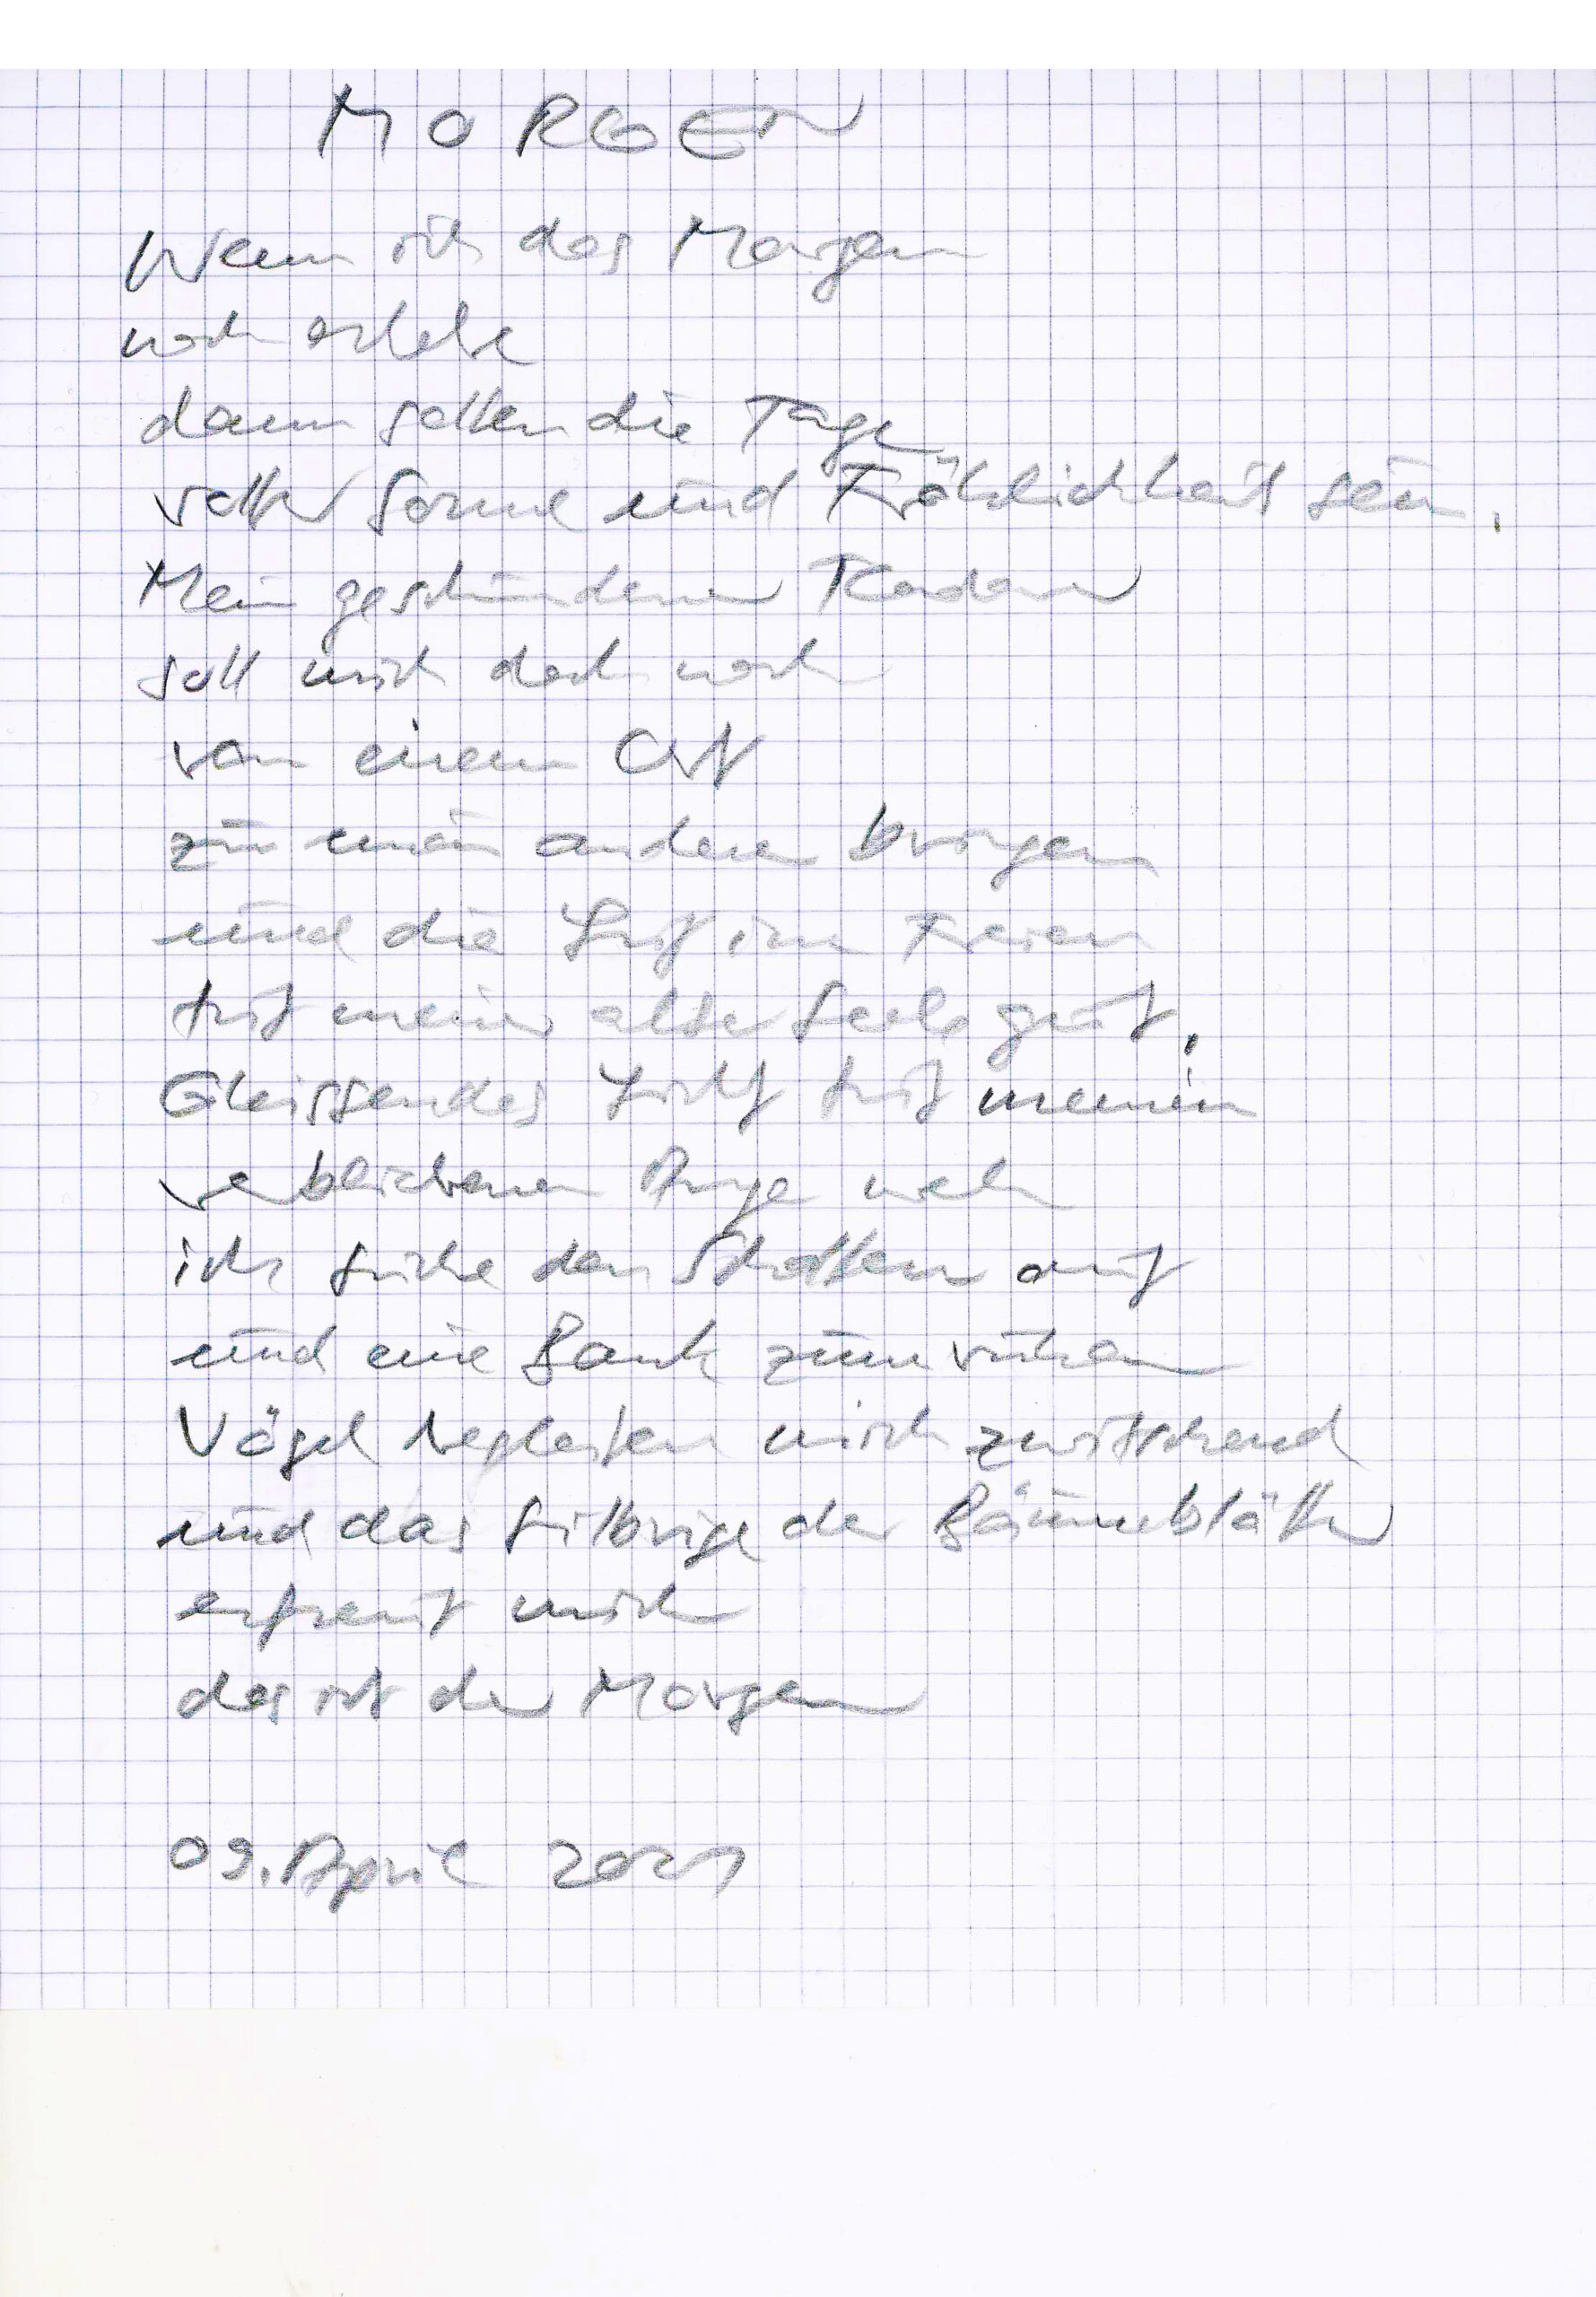 MORGEN
Wenn ich das Morgen
noch erlebe
dann sollen die Tage
voller Sonne und Fröhlichkeit sein.
Mein geschundener Kadaver
soll mich doch noch
von einem Ort
zum andern bringen
und die Luft im Freien
tut meiner alten Seele gut.
Gleissendes Licht tut meinem
verblichenen Auge weh
ich suche den Schatten auf
und eine Bank zum ruhen
Vögel begleiten mich zwitschernd
und das silbrige der Bäumeblätter
erfreut mich
das ist der Morgen
09. April 2021